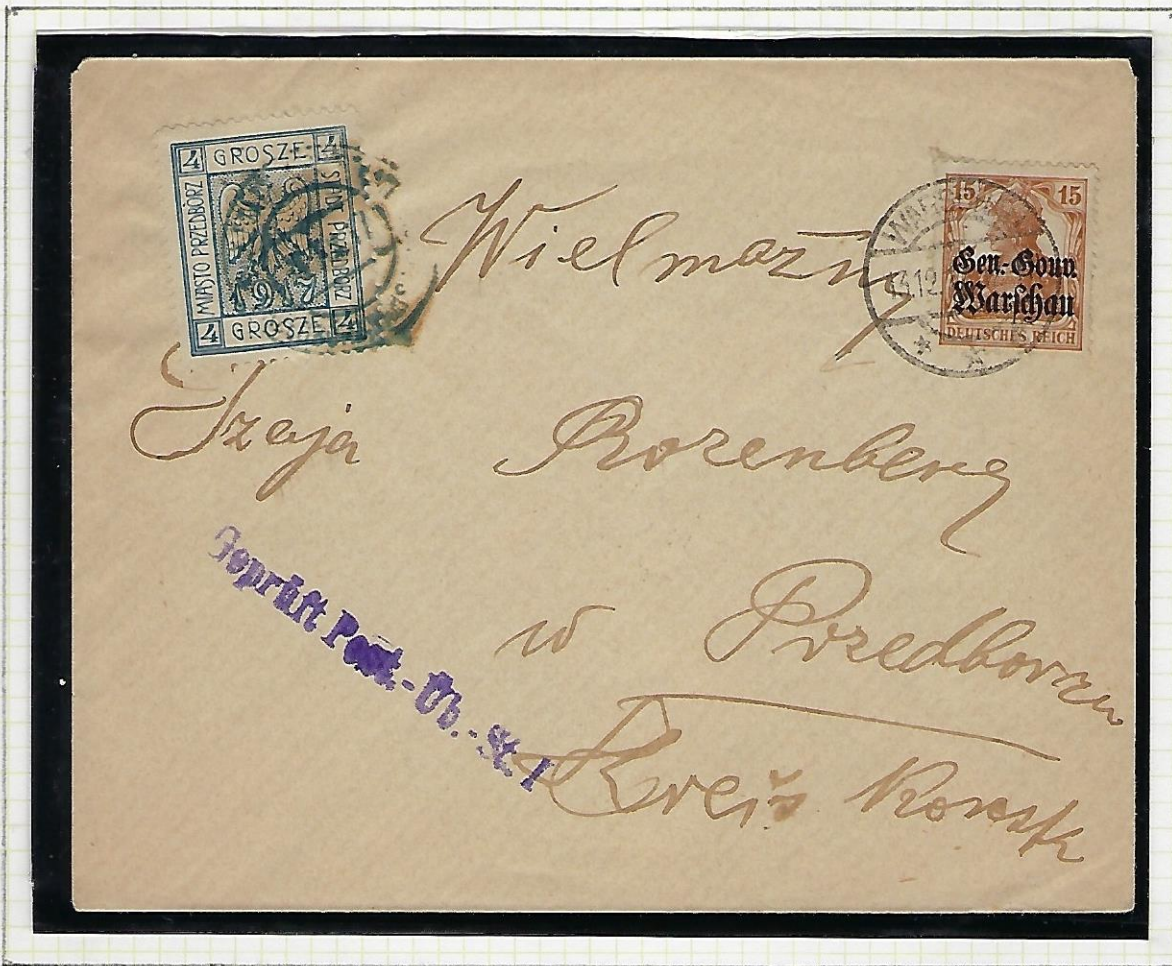 4 GROSZE 4
MIASTO PRZEDBÓRZ
STADT PRZEDBORZ
1917
4 GROSZE 4
15 15
Gen.-Gouv.
Warschau
DEUTSCHES REICH
Wielmożny
Izaja Rozenberg
w Przedborzu
Kreis Konsk
Geprüft Post.-Üb.-St. 1